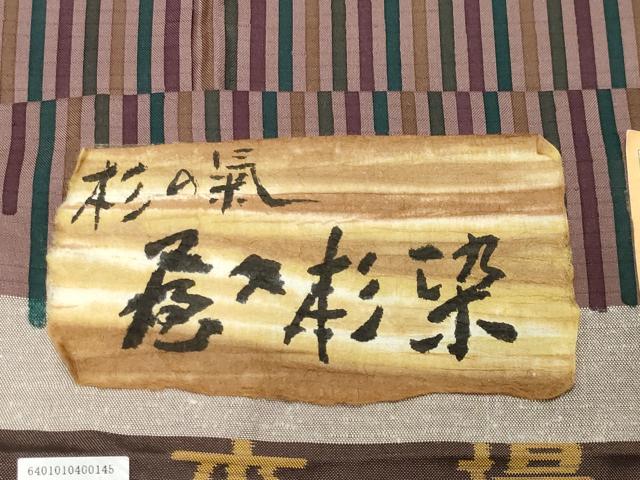 杉の氣
屋久杉染
本場
6401010400145